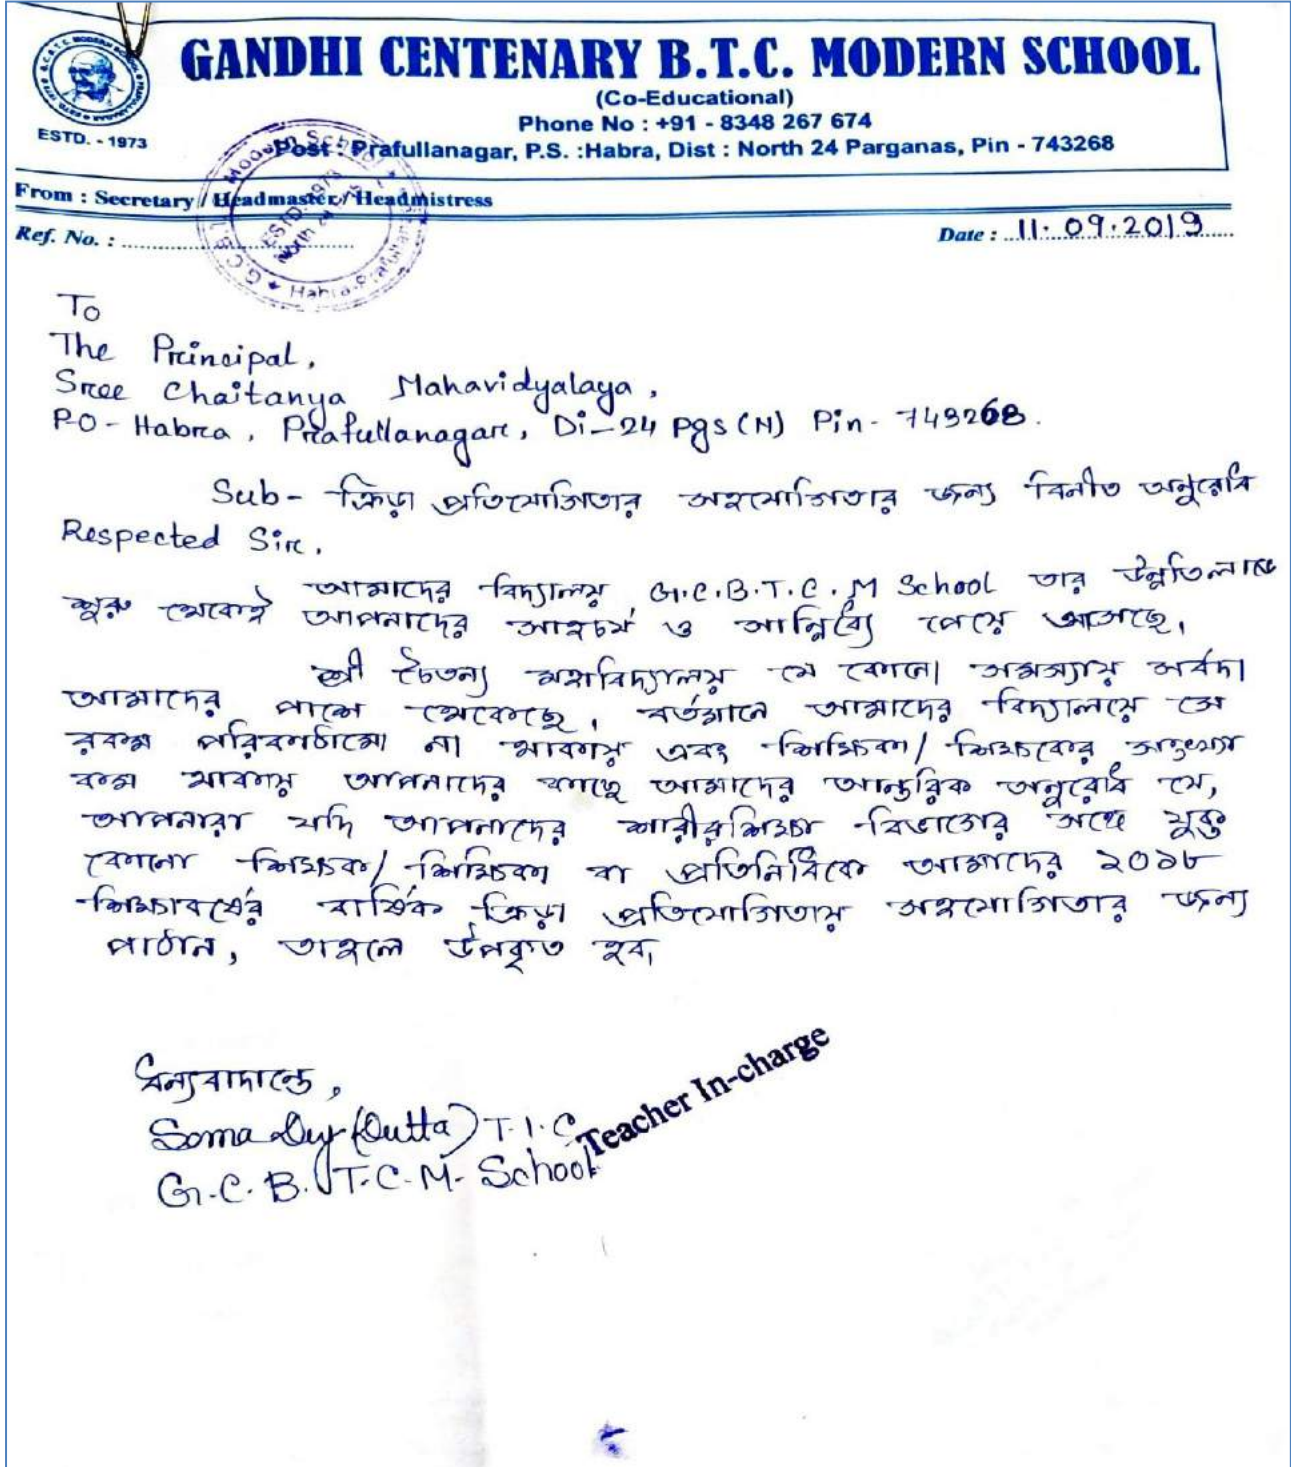 GANDHI CENTENARY B.T.C. MODERN SCHOOL
(Co-Educational)
Phone No : +91 - 8348 267 674
ESTD. - 1973
Post : Prafullanagar, P.S. :Habra, Dist : North 24 Parganas, Pin - 743268
From : Secretary / Headmaster / Headmistress
Ref. No. :
Date : 11.09.2019
To
The Principal,
Sree Chaitanya Mahavidyalaya,
P.O - Habra, Prafullanagar, Di-24 Pgs (N) Pin - 743268.
Sub - ক্রিড়া প্রতিযোগিতার সহযোগিতার জন্য বিনীত অনুরোধ
Respected Sir,
আমাদের বিদ্যালয় G.C.B.T.C.M School তার উন্নতিলাভে
শুরু থেকেই আপনাদের সাহচর্য ও সান্নিধ্যে পেয়ে আসছে।
শ্রী চৈতন্য মহাবিদ্যালয় যে কোনো সমস্যায় সর্বদা
আমাদের পাশে থেকেছে। বর্তমানে আমাদের বিদ্যালয়ে সে
রকম পরিকাঠামো না থাকায় এবং শিক্ষিকা/ শিক্ষকের সংখ্যা
কম থাকায় আপনাদের কাছে আমাদের আন্তরিক অনুরোধ যে,
আপনারা যদি আপনাদের শারীরশিক্ষা বিভাগের সঙ্গে যুক্ত
কোনো শিক্ষক/ শিক্ষিকা বা প্রতিনিধিকে আমাদের ২০১৮
শিক্ষাবর্ষের বার্ষিক ক্রিড়া প্রতিযোগিতায় সহযোগিতার জন্য
পাঠান, তাহলে উপকৃত হব।
ধন্যবাদান্তে,
Soma Dey (Dutta) T.I.C
G.C.B.T.C.M. School
Teacher In-charge